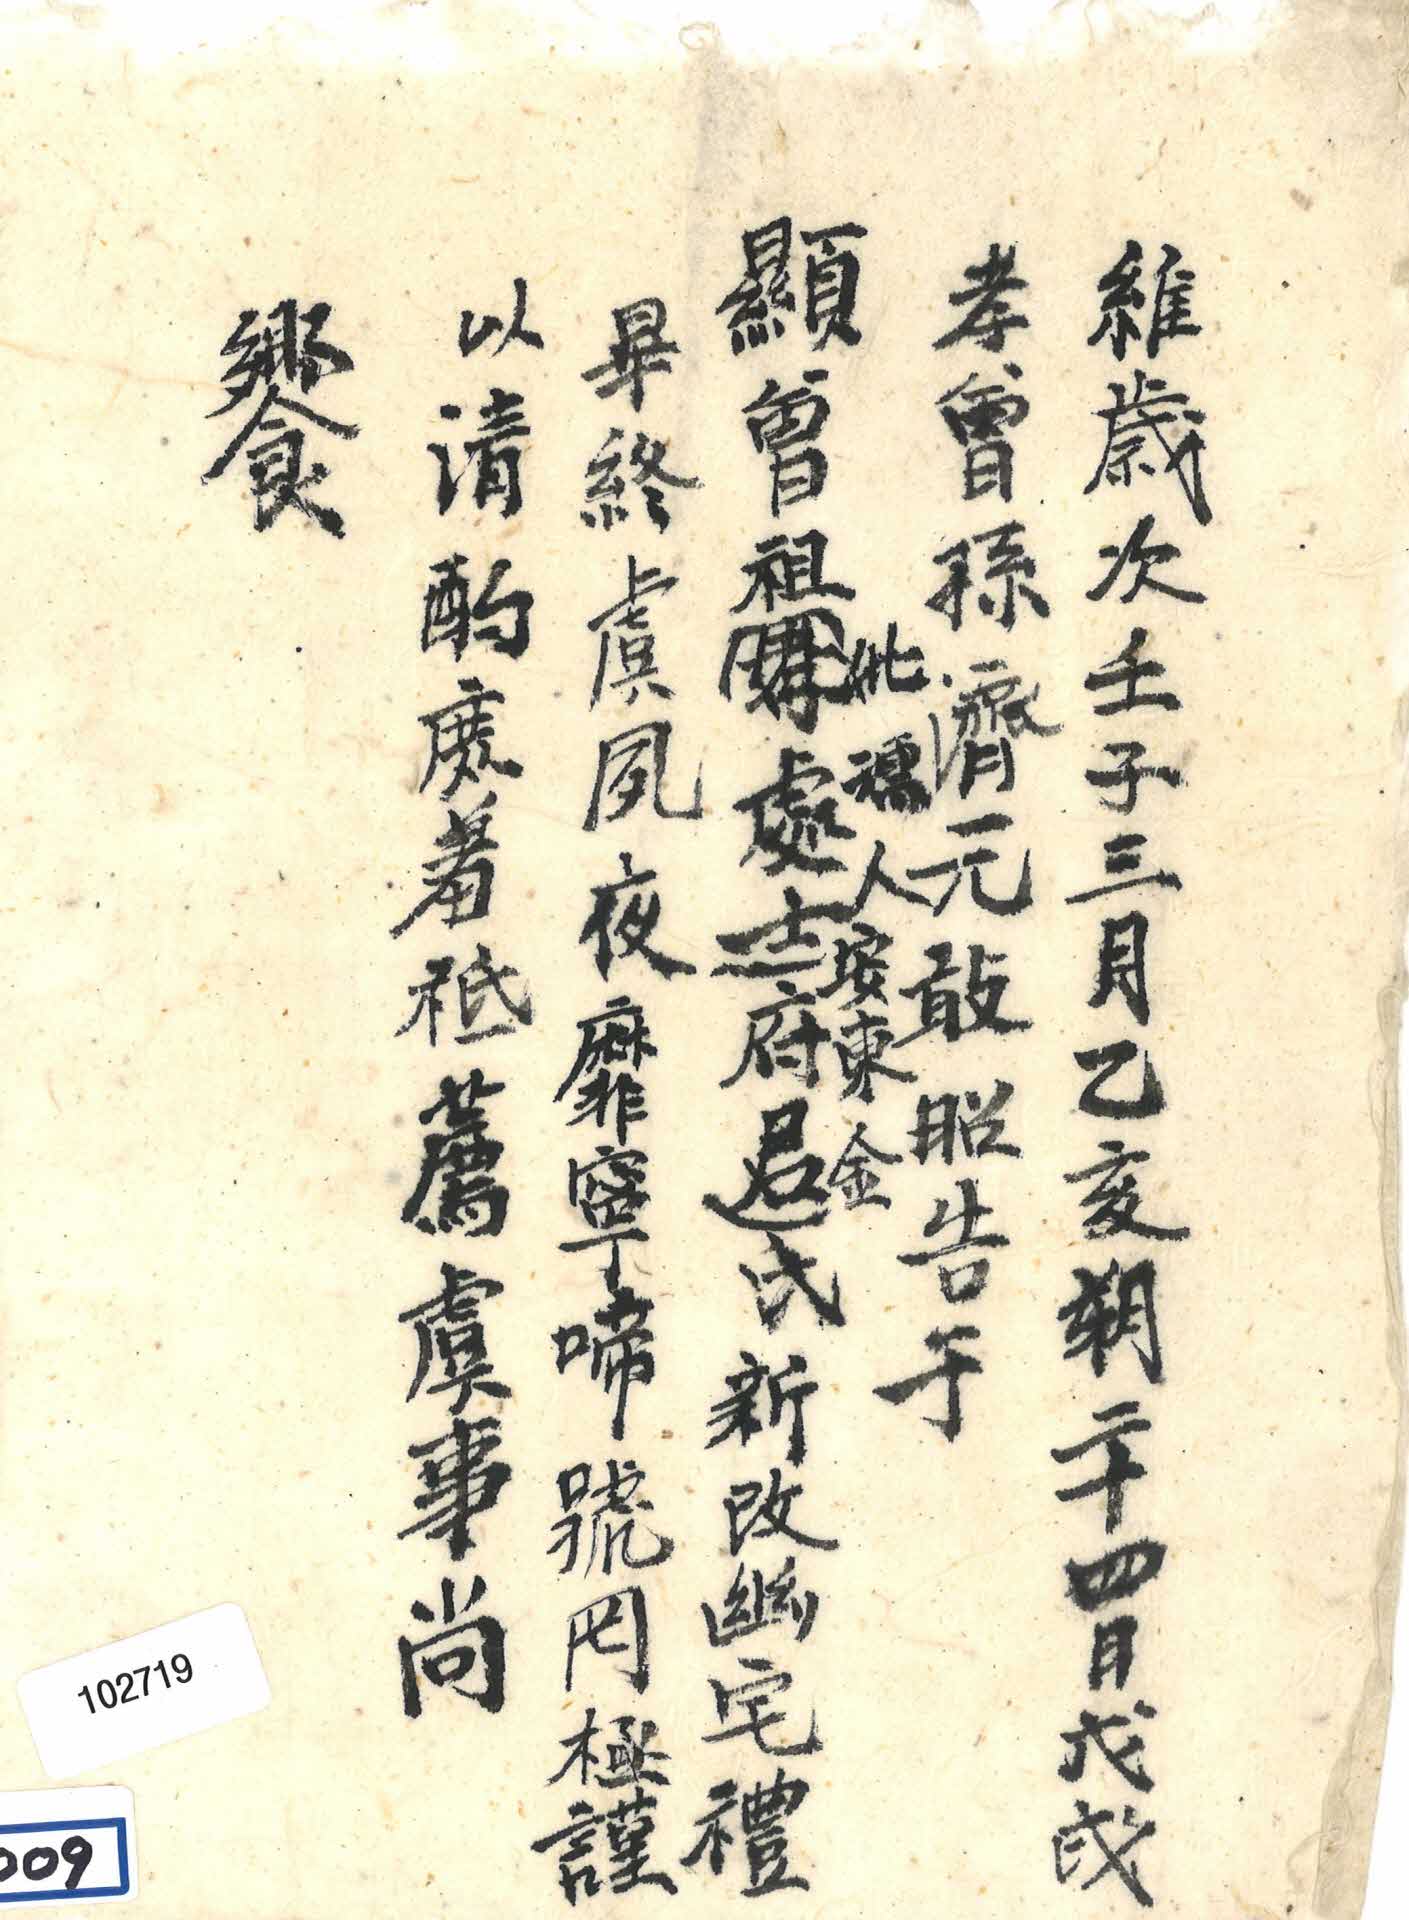 維歲次壬子三月乙亥朔二十四日戊戌
孝曾孫濟元敢昭告于
妣孺人安東金
顯曾祖處士府君氏新改幽宅禮
畢終虞夙夜靡寧啼號罔極謹
以淸酌庶羞祗薦虞事尙
饗
102719
009